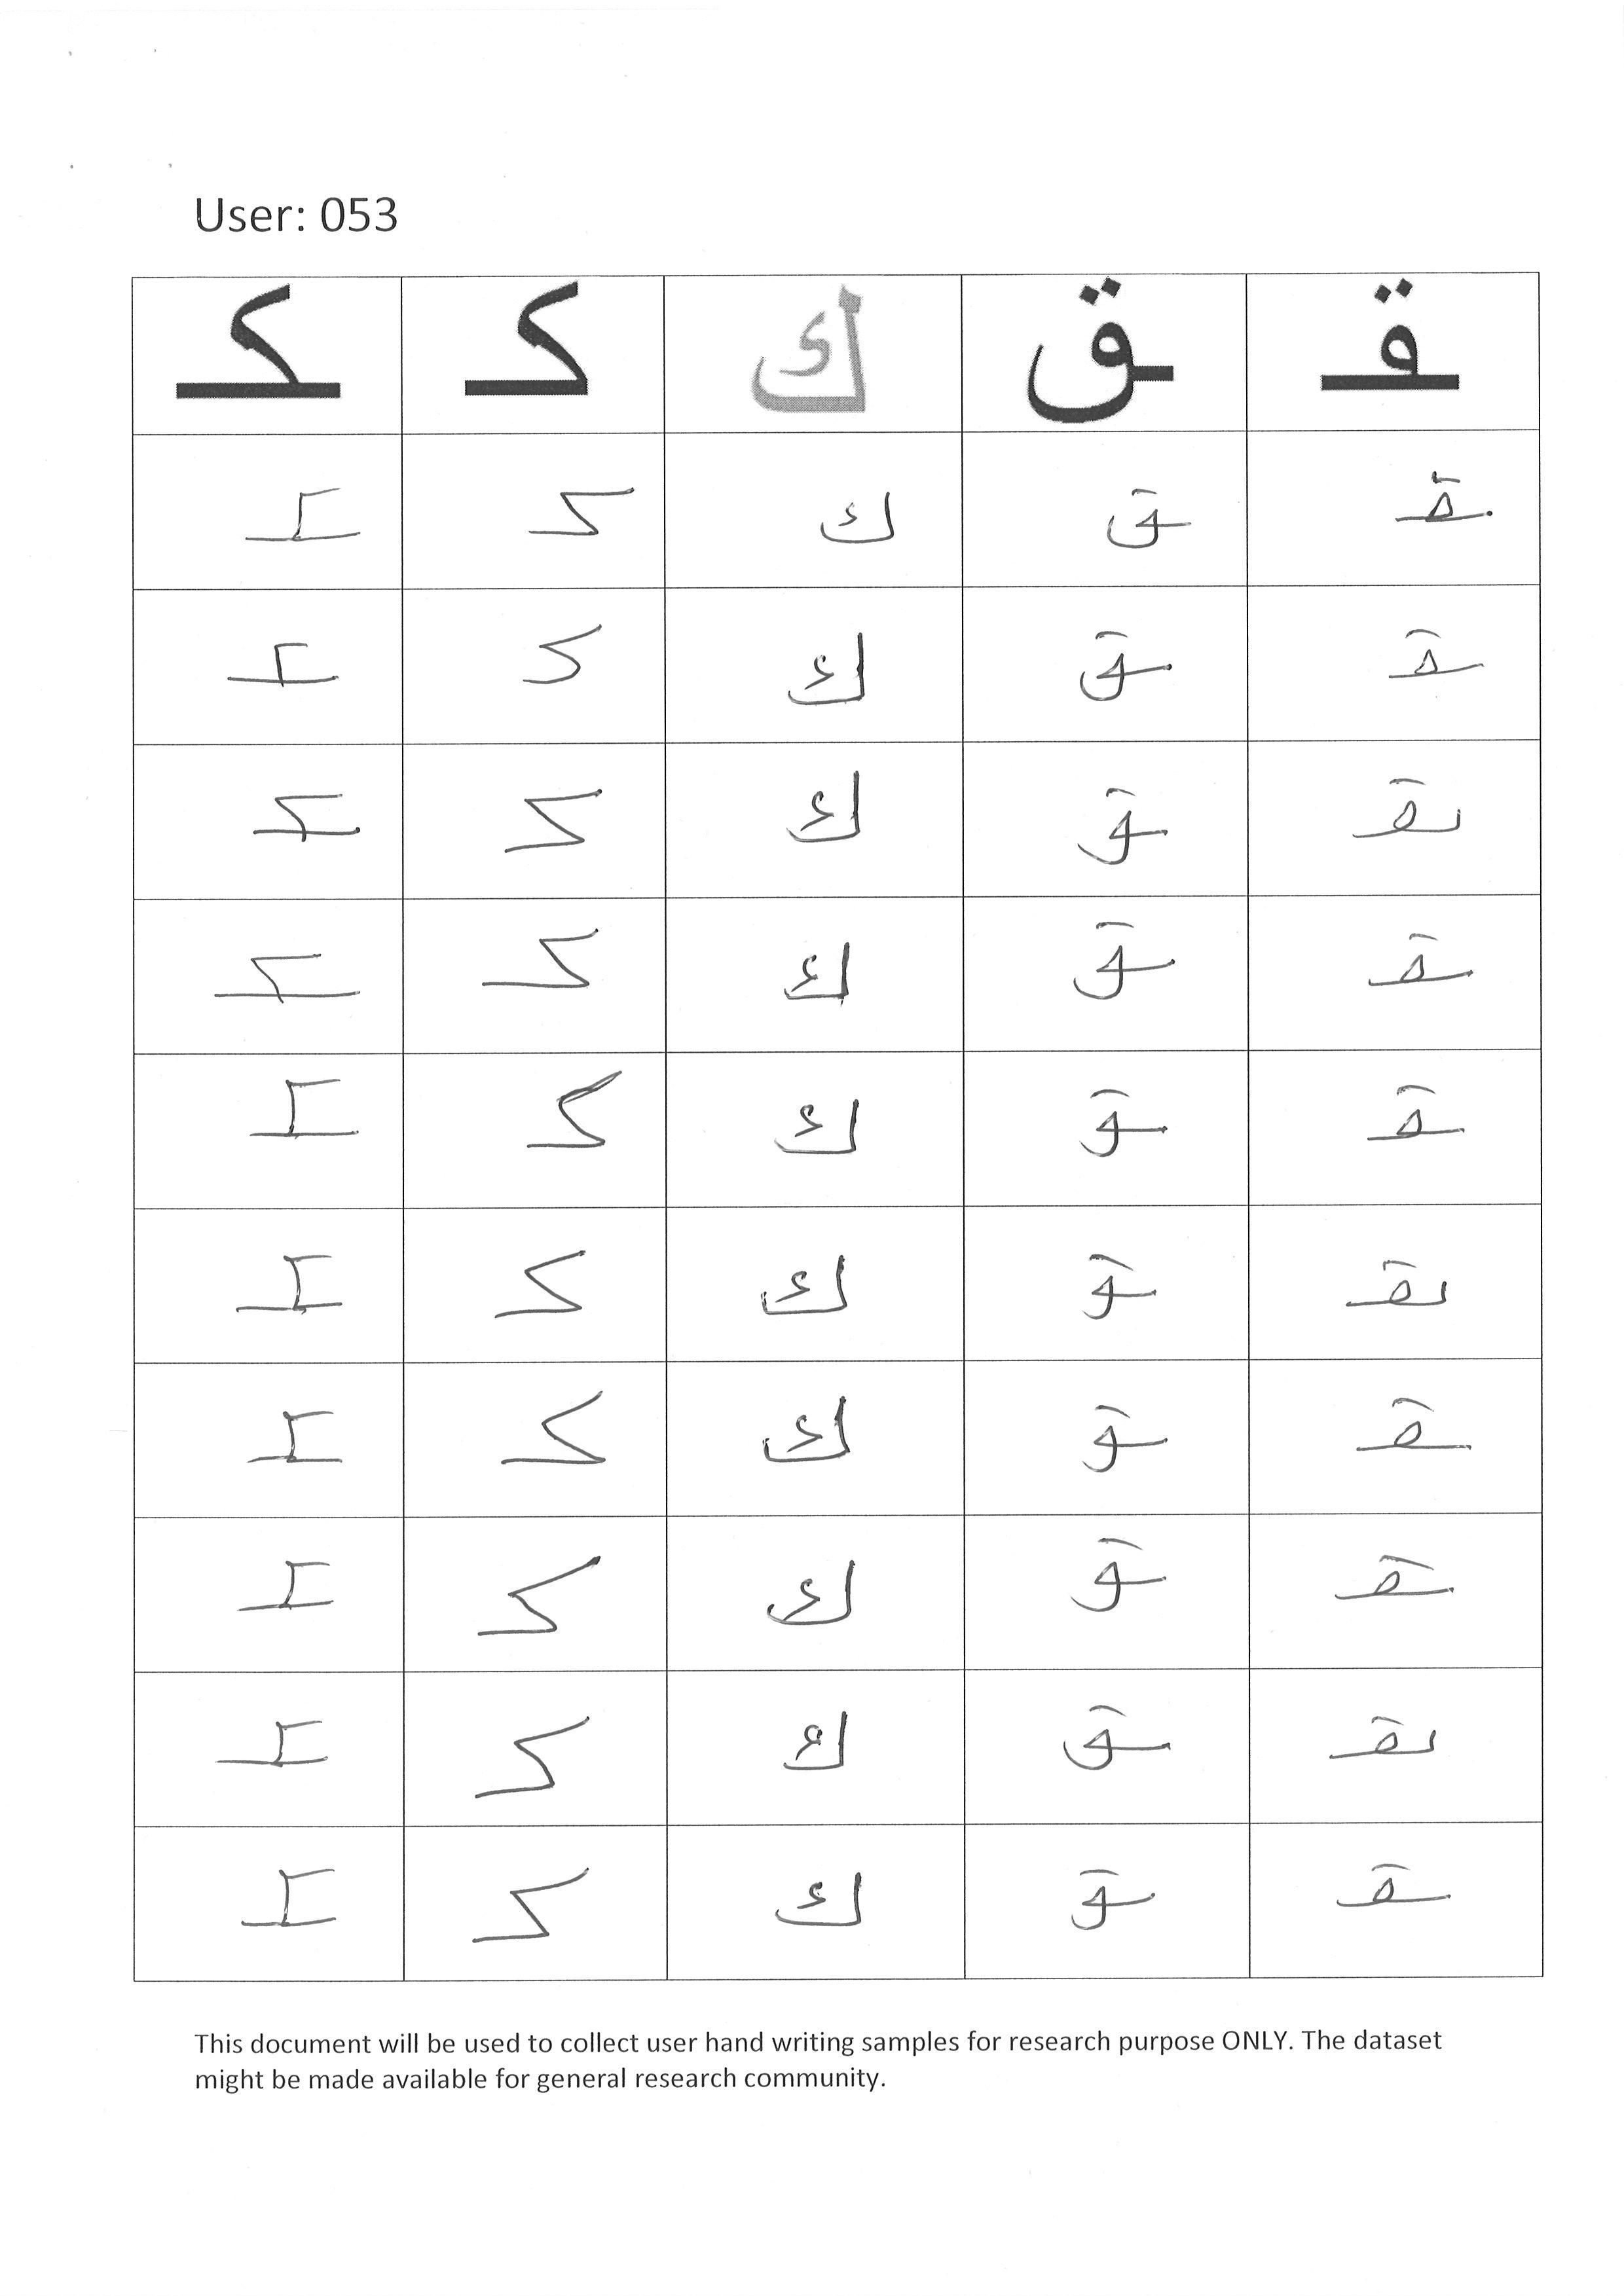 User: 053
ـكـ كـ ك ـق ـقـ
ـكـ كـ ك ـق ـقـ
ـكـ كـ ك ـق ـقـ
ـكـ كـ ك ـق ـقـ
ـكـ كـ ك ـق ـقـ
ـكـ كـ ك ـق ـقـ
ـكـ كـ ك ـق ـقـ
ـكـ كـ ك ـق ـقـ
ـكـ كـ ك ـق ـقـ
ـكـ كـ ك ـق ـقـ
ـكـ كـ ك ـق ـقـ
This document will be used to collect user hand writing samples for research purpose ONLY. The dataset
might be made available for general research community.